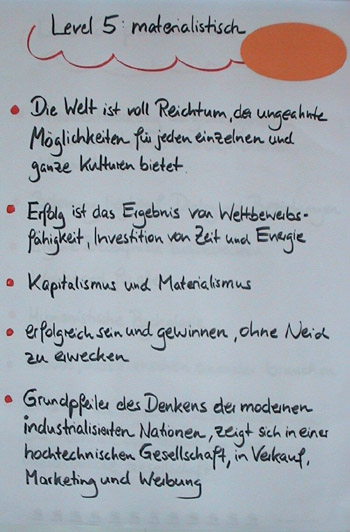 Level 5: materialistisch
Die Welt ist voll Reichtum, der ungeahnte
Möglichkeiten für jeden einzelnen und
ganze Kulturen bietet.
Erfolg ist das Ergebnis von Wettbewerbs-
fähigkeit, Investition von Zeit und Energie
Kapitalismus und Materialismus
erfolgreich sein und gewinnen, ohne Neid
zu erwecken
Grundpfeiler des Denkens der modernen
industrialisierten Nationen, zeigt sich in einer
hochtechnischen Gesellschaft, in Verkauf,
Marketing und Werbung